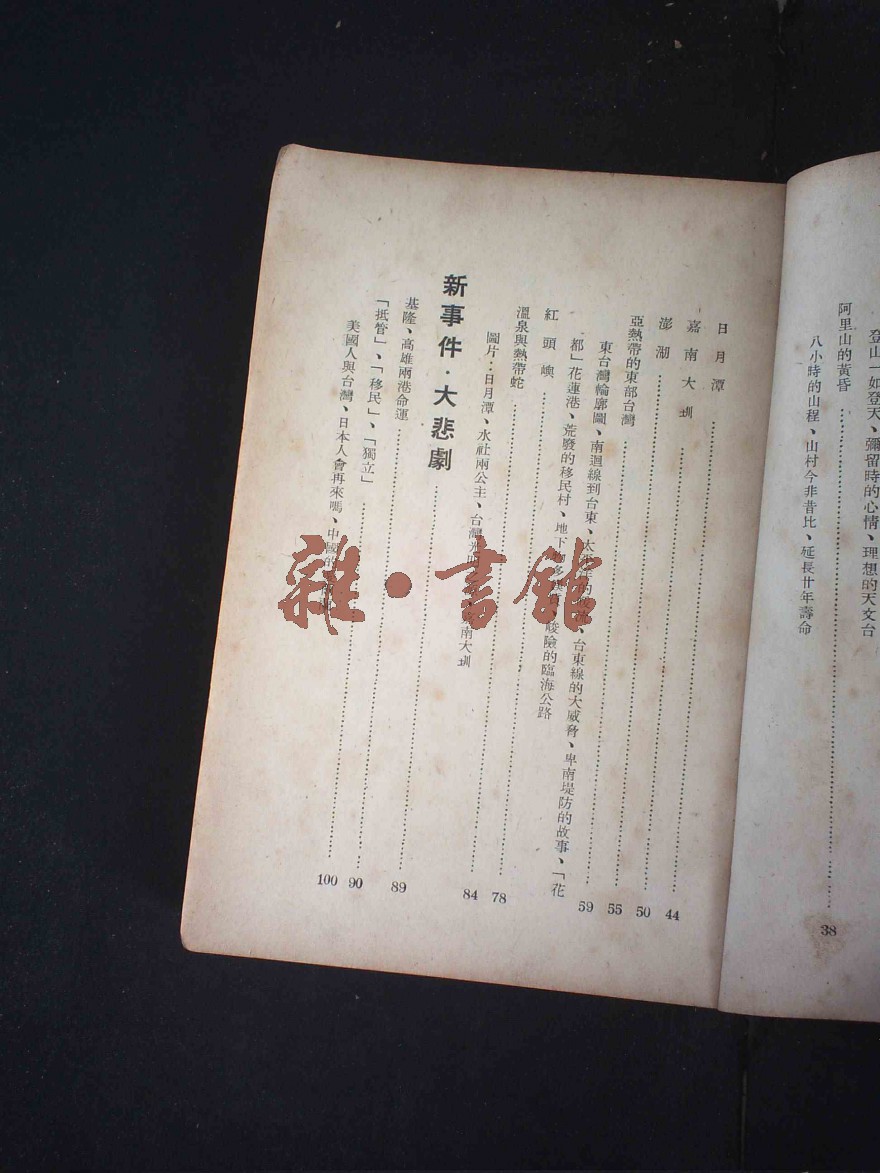 登山一如登天、彌留時的心情、理想的天文台
阿里山的黃昏 38
八小時的山程、山村今非昔比、延長廿年壽命
日月潭 44
嘉南大圳 50
澎湖 55
亞熱帶的東部台灣 59
東台灣輪廓圖、南迴線到台東、太 的 、台東線的大威脅、卑南堤防的故事、「花
都」花蓮港、荒廢的移民村、地下 、峻險的臨海公路
紅頭嶼 78
溫泉與熱帶蛇 84
圖片：日月潭、水社兩公主、台灣光 南大圳
新事件·大悲劇 89
基隆、高雄兩港命運 90
「抵管」、「移民」、「獨立」 100
美國人與台灣、日本人會再來嗎、中國的
雜·書館